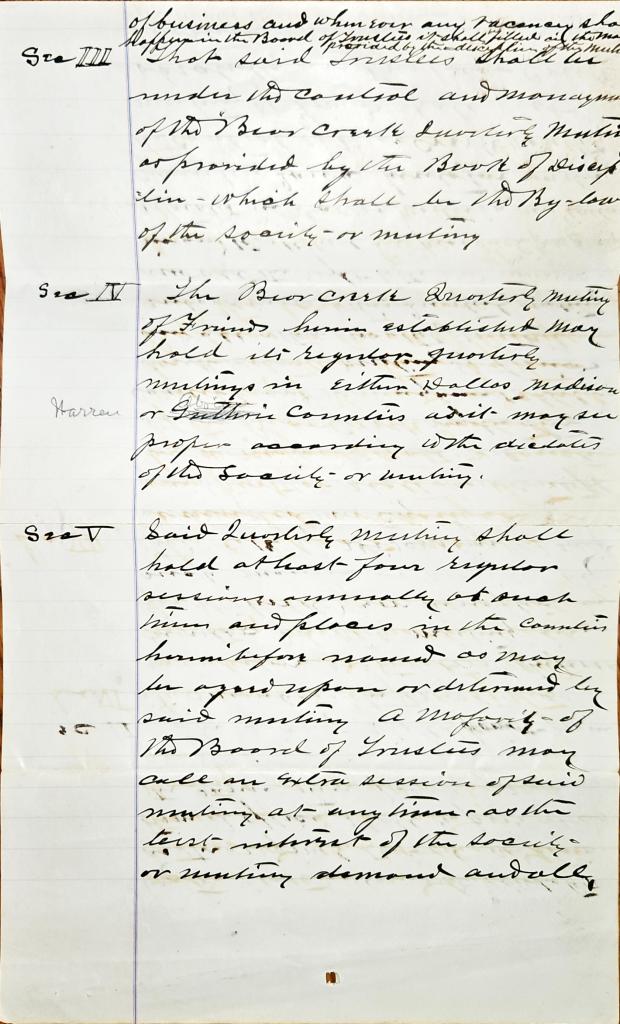 of business and whenever any vacancy sha
Happen in the Board of Trustees it shall filled in the ma
provided by the discipline of the Meeti
Sec III That said Trustees shall be
under the control and managem
of the Bear Creek Quarterly Meetin
as provided by the Book of Discip
lin - which shall be the By-law
of the society or meeting
Sec IV The Bear creek Quarterly meeting
of Friends herein established may
hold its regular quarterly
meetings in Either Dallas Madison
Warren or Guthrie Counties as it may see
proper according to the dictates
of the Society or meeting.
Sec V Said Quarterly Meeting shall
hold at least four regular
sessions annually at such
times and places in the counties
hereinbefore named as may
be agreed upon or determined by
said meeting A Majority of
the Board of Trustees may
call an Extra session of said
meeting at any time as the
best interest of the society
or meeting demand and all